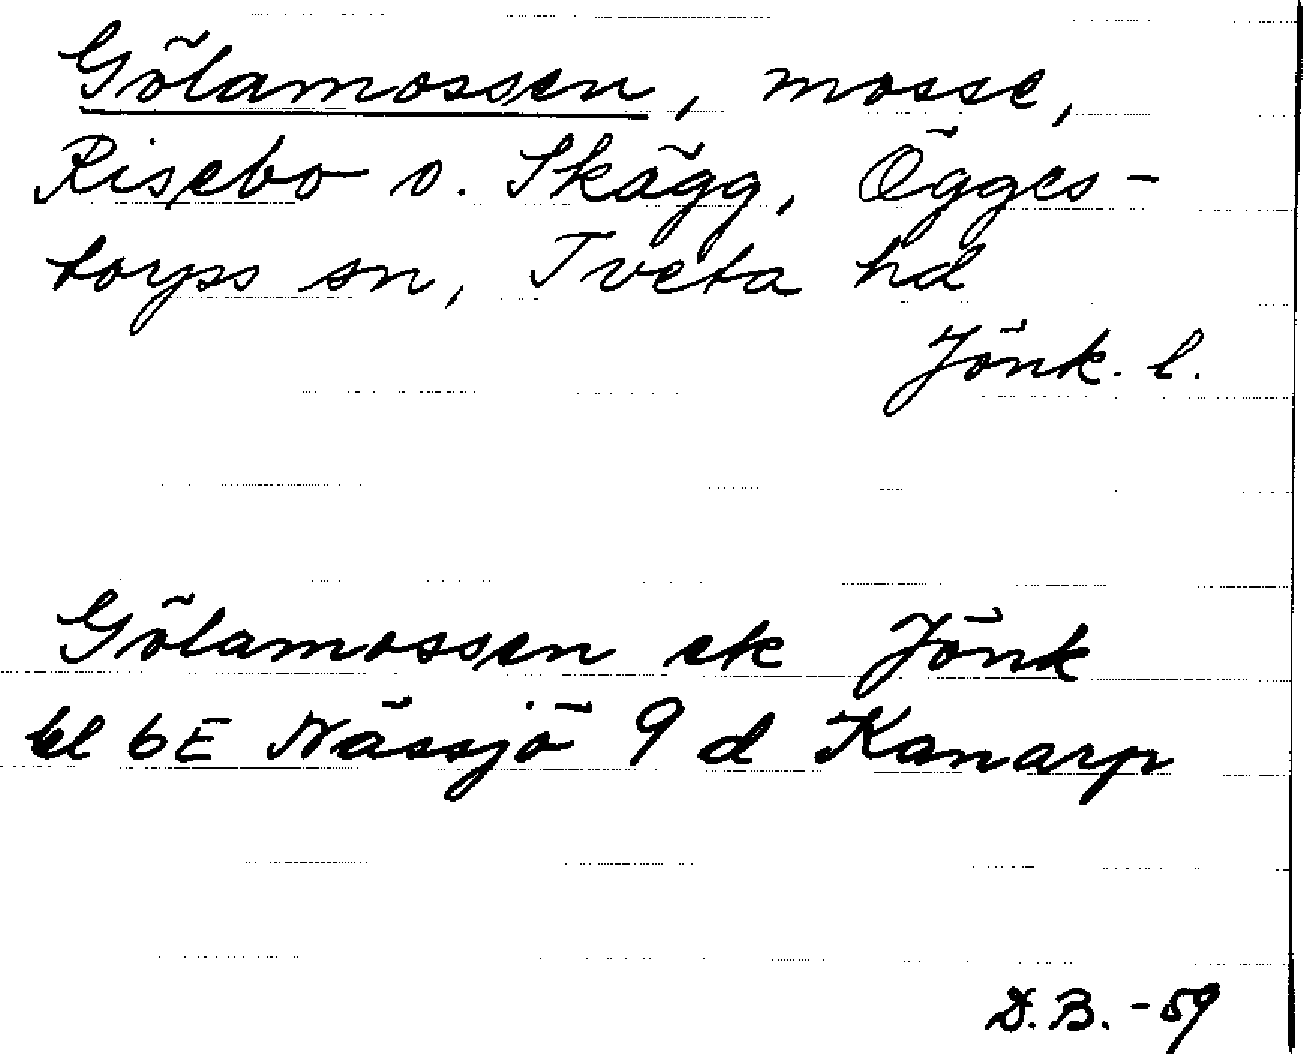 Gölamossen, mosse,
Risebo o. Skägg, Ögges-
torps sn, Tveta hd
Jönk. l.
Gölamossen ek Jönk
bl 6E Nässjö 9 d Kanarp
D.B. -59